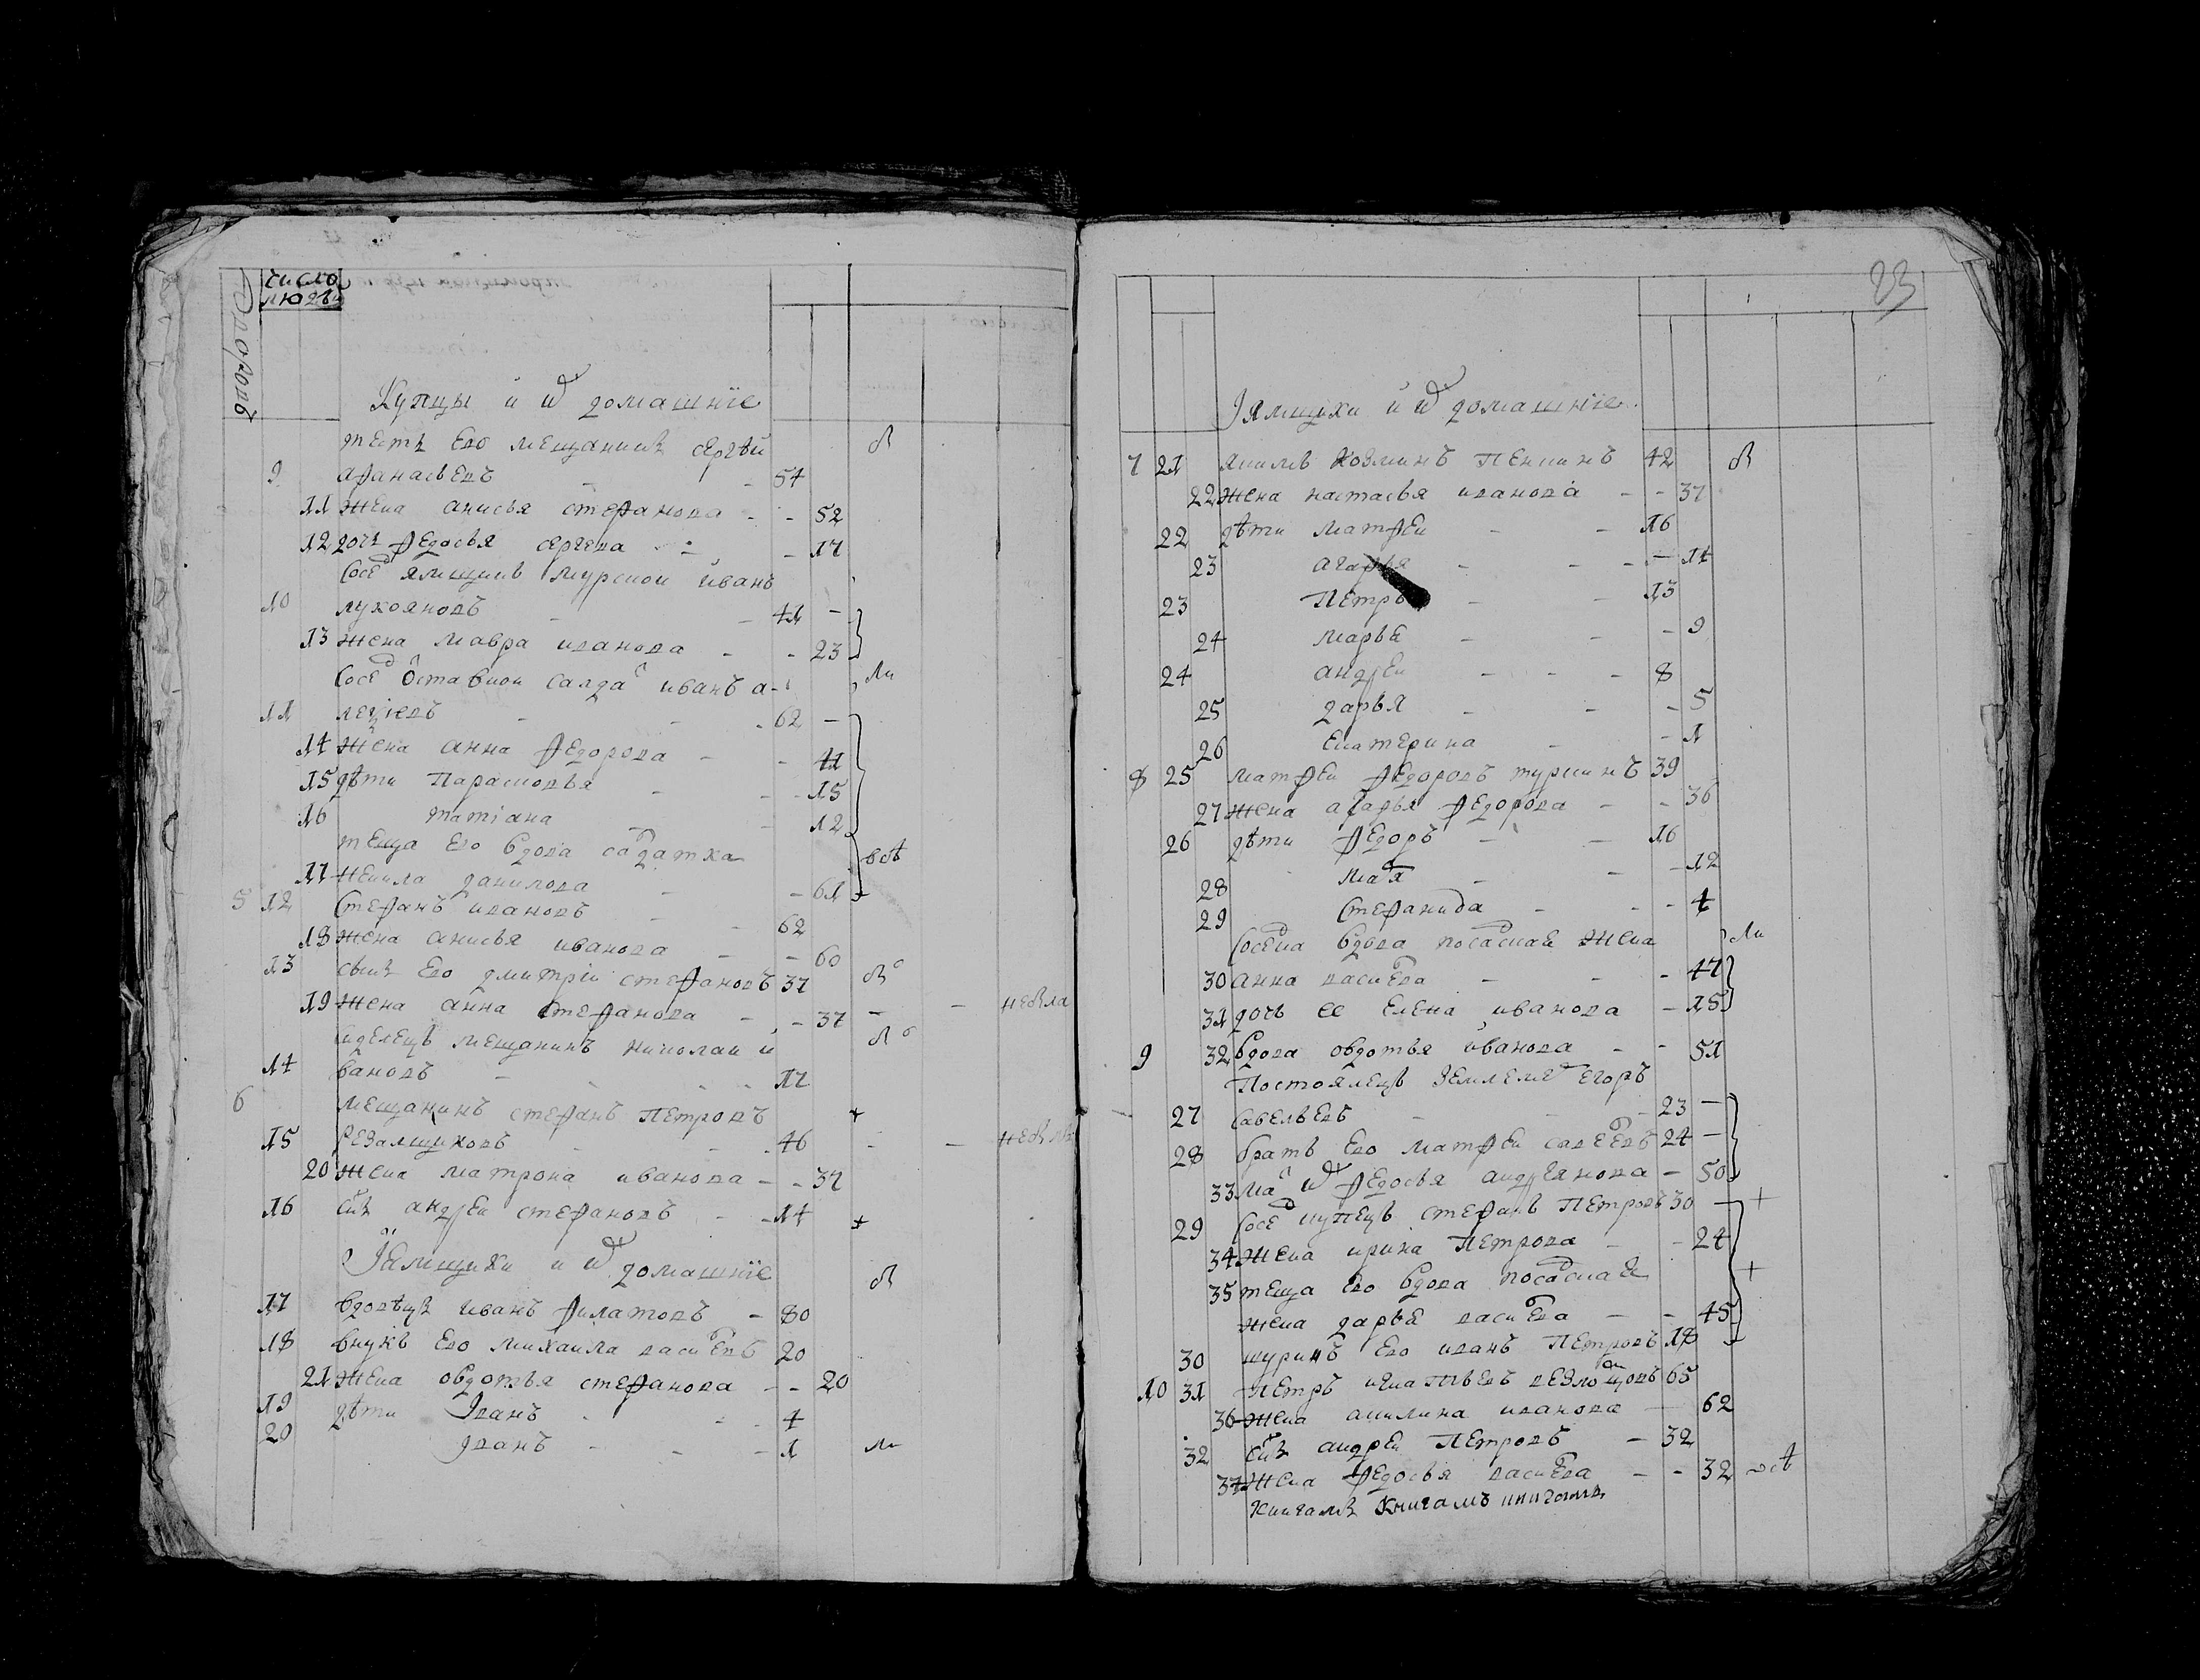 число
людѣи
дворовъ
Купцы и и домашнїе
тесть Ево мещанинъ сергѣи
9 афанасьевъ - - 54
11 жена анисья стефанова - - 52
12 дочь федосья сергева - - 17
сосе ямщикъ мурскои иванъ
10 лукояновъ - - 41 -
13 жена мавра иванова - - 23
сосе оставнои салда иванъ а- ли
11 леѯіевъ - - 62 -
14 жена анна федорова - - 41
15 дѣти Парасковья - - 15
16 татіана - 12
теща Ево вдова садатка всѣ
17 Ненила данилова - - 61
5 12 стефанъ ивановъ - - 62
18 жена анисья иванова - - 60
13 сынъ Ево дмитрїи стефановъ 37
19 жена анна стефанова - - 37 - - небыла
сиделецъ мещанинъ николаи и
14 вановъ - - - 17
6 мещанинъ стефанъ Петровъ +
15 резалщиковъ - - 46 - -
20 жена матрона иванова - - 37
16 снъ андреи стефановъ - - 14 +
Ямщики и и домашнїе
17 вдовецъ иванъ филатовъ - 80
18 внукъ Ево михаила васиевъ 20
21 жена овдотья стефанова - - 20
19 дѣти Іванъ - - - 4
20 іванъ - - - 1 ли
23
Ямщики и и домашнїе
7 21 якимъ козминъ Пенкинъ 42
22 жена настасья иванова - - 37
22 дѣти матфеи - - 16
23 агафья - - - 14
23 Петръ - - 13
24 марья - - - 9
24 андреи - - - 8
25 дарья - - - 5
26 екатерина - - 1
8 25 матфеи федоровъ туркинъ 39
27 жена агафья федорова - - 36
26 дѣти федоръ - - 16
28 мая - - - 12
29 стефанида - - - 4
соседка вдова посадская жена ли
30 анна васиева - - - 47
31 дочь ее елена иванова - 15
9 32 вдова овдотья иванова - - 51
Постоялецъ землемѣ егоръ
27 савельевъ - - 23 -
28 братъ Ево матфеи савеевъ 24 -
33 ма и федосья андреянова - 50
29 сосе купецъ стефанъ Петровъ 30 - +
34 жена ирина Петрова - - 24
35 теща Ево вдова посадская +
жена дарья васиева - - 45
30 шуринъ Ево иванъ Петровъ 18 -
10 31 Петръ игнатьевъ 65
36 жена акилина иванова - 62
32 снъ андреи Петровъ - 32
37 жена федосья васиева - - 32 всѣ
Книгамъ Книгамъ